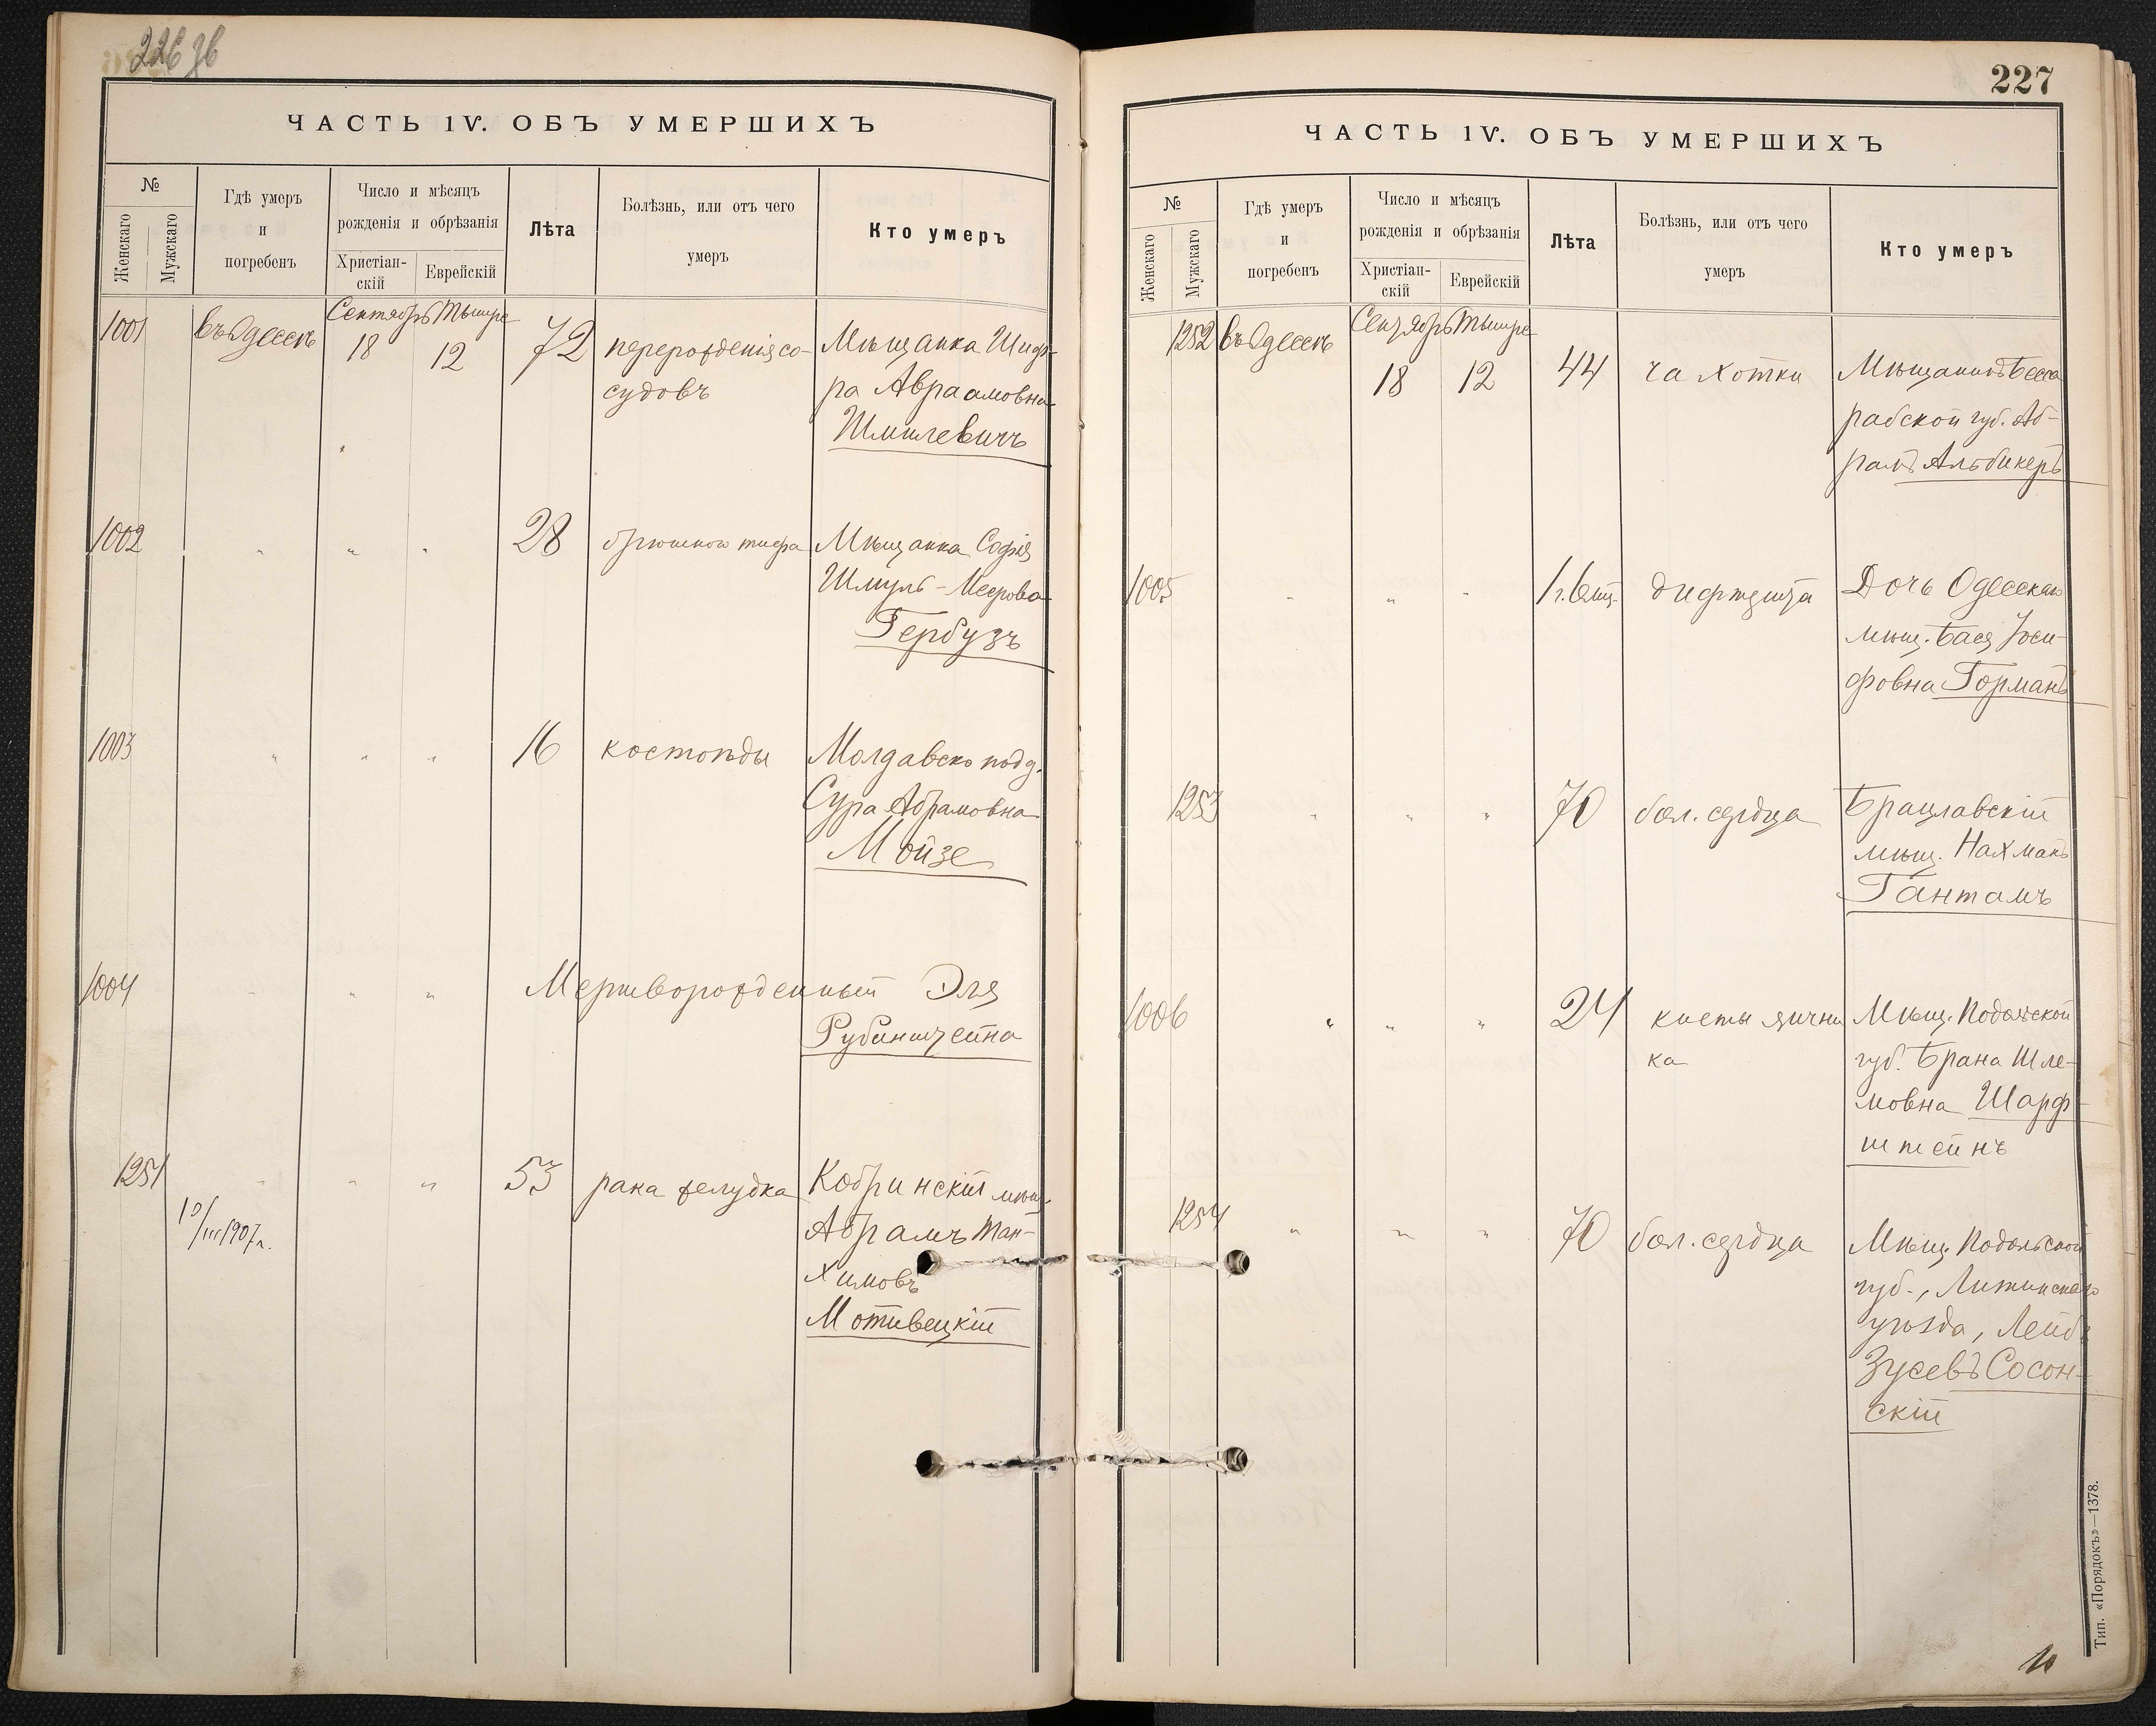 226 зв
ЧАСТЬ 1V. ОБЪ УМЕРШИХЪ
№
Женскаго
Мужскаго
Гдѣ умеръ
и
погребенъ
Число и мѣсяцъ
рожденія и обрѣзанія
Христіан-
скій
Еврейскій
Лѣта
Болѣзнь, или отъ чего
умеръ
Кто умеръ
Сентябрь Тышре
1001 въ Одессѣ 18 12 72 перерожденія со- Мѣщанка Шиф-
судовъ ра Авраамовна
Шмилевичъ
1002 " " " 28 брюшного тифа Мѣщанка Софія
Шмуль-Меерова
Гербузъ
1003 " " " 16 костоѣды Молдавско подд.
Сура Абрамовна
Мойзе
1004 " " " Мертворожденный Эля
Рубинштейна
1251 " " " 53 рака желудка Кобринскій мѣщ.
10/III 1907 г. Абрамъ Тан-
химовъ
Мотивецкій
227
ЧАСТЬ 1V. ОБЪ УМЕРШИХЪ
№
Женскаго
Мужскаго
Гдѣ умеръ
и
погребенъ
Число и мѣсяцъ
рожденія и обрѣзанія
Христіан-
скій
Еврейскій
Лѣта
Болѣзнь, или отъ чего
умеръ
Кто умеръ
Сентябрь Тышре
1252 въ Одессѣ 18 12 44 чахотки Мѣщанинъ Бесса
рабской губ. Аб-
рамъ Альбикеръ
1005 " " " 1 г. 6 мѣс. дифтерита Дочь Одесскаго
мѣщ. Бася Іоси-
фовна Горманъ
1253 " " " 70 бол. сердца Брацлавскій
мѣщ. Нахманъ
Гантамъ
1006 " " " 24 кисты яични Мѣщ. Подольской
ка губ. Брана Шле-
мовна Шарф-
штейнъ
1254 " " " 70 бол. сердца Мѣщ. Подольской
губ., Литинскаго
уѣзда, Лейбъ
Зусевъ Сосон-
скій
Тип. «Порядокъ»—1378.